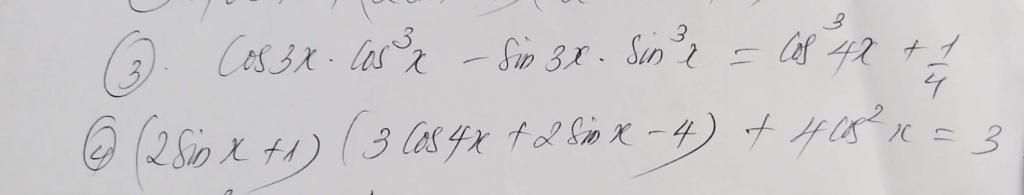 ③. Cos3x. Cos³x - Sin3x. Sin³x = Cos³4x + 1/4
④ (2Sin x + 1) (3 Cos4x + 2Sin x - 4) + 4Cos²x = 3